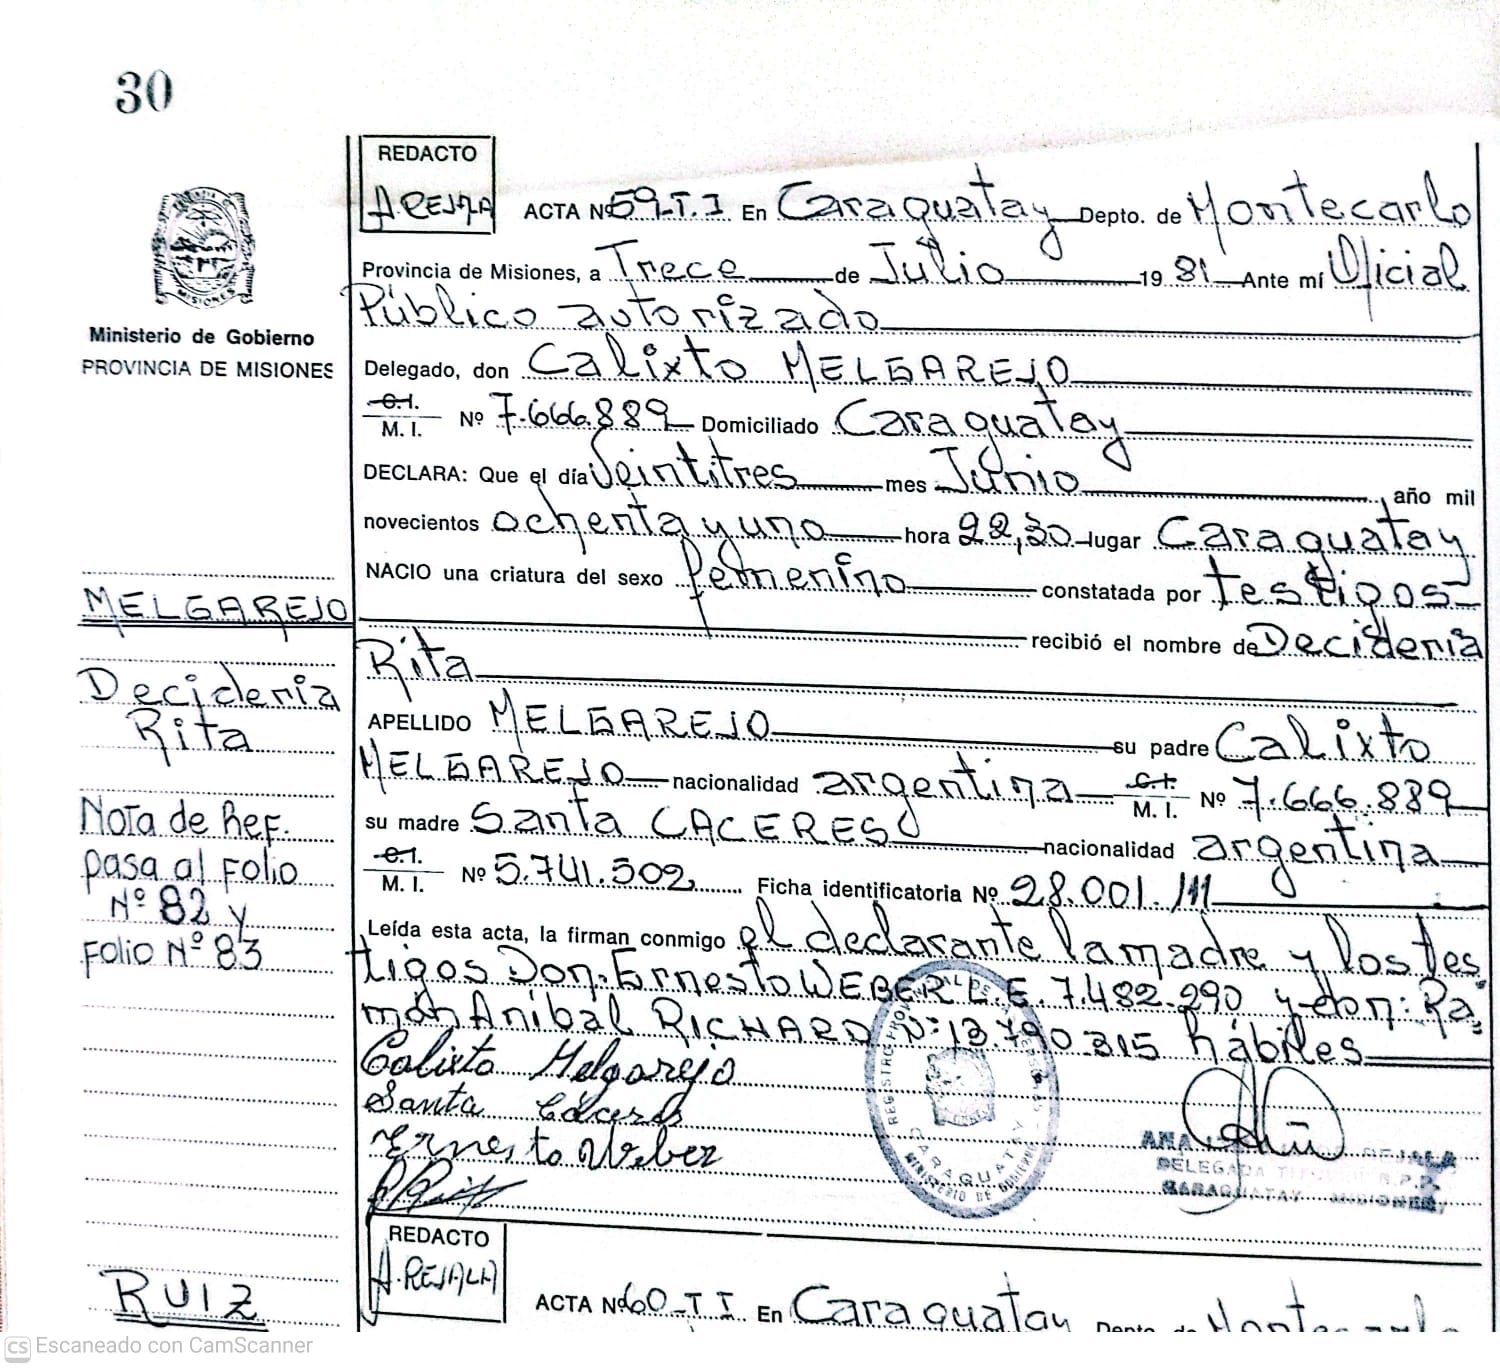 30
REDACTO
A. REJALA
ACTA Nº 59-T.I En Caraguatay Depto. de Montecarlo
Provincia de Misiones, a Trece de Julio 1981 Ante mí Oficial
Público autorizado
Delegado, don Calixto MELGAREJO
C.I. M. I. Nº 7.666.889 Domiciliado Caraguatay
DECLARA: Que el día Veintitres mes Junio año mil
novecientos ochenta y uno hora 22,30 lugar Caraguatay
NACIO una criatura del sexo femenino constatada por testigos
recibió el nombre de Decideria
Rita
APELLIDO MELGAREJO su padre Calixto
MELGAREJO nacionalidad argentina C.I. M. I. Nº 7.666.889
su madre Santa CACERES nacionalidad argentina
C.I. M. I. Nº 5.741.502 Ficha identificatoria Nº 28.001.111
Leída esta acta, la firman conmigo el declarante la madre y los tes
tigos Don: Ernesto WEBER L.E. 7.482.290 y don: Ra
món Aníbal RICHARD Nº: 13.790.315 hábiles
Calixto Melgarejo
Santa Cáceres
Ernesto Weber
REGISTRO PROV
CARAGUATAY
MINISTERIO DE GOBIERNO
ANA REJALA
DELEGADA R.P.P.
CARAGUATAY MISIONES
MISIONES
Ministerio de Gobierno
PROVINCIA DE MISIONES
MELGAREJO
Decideria
Rita
Nota de Ref.
pasa al Folio
Nº 82 y
Folio Nº 83
RUIZ
REDACTO
A. REJALA
ACTA Nº 60-T I En Caraguatay Depto. de Montecarlo
CS Escaneado con CamScanner